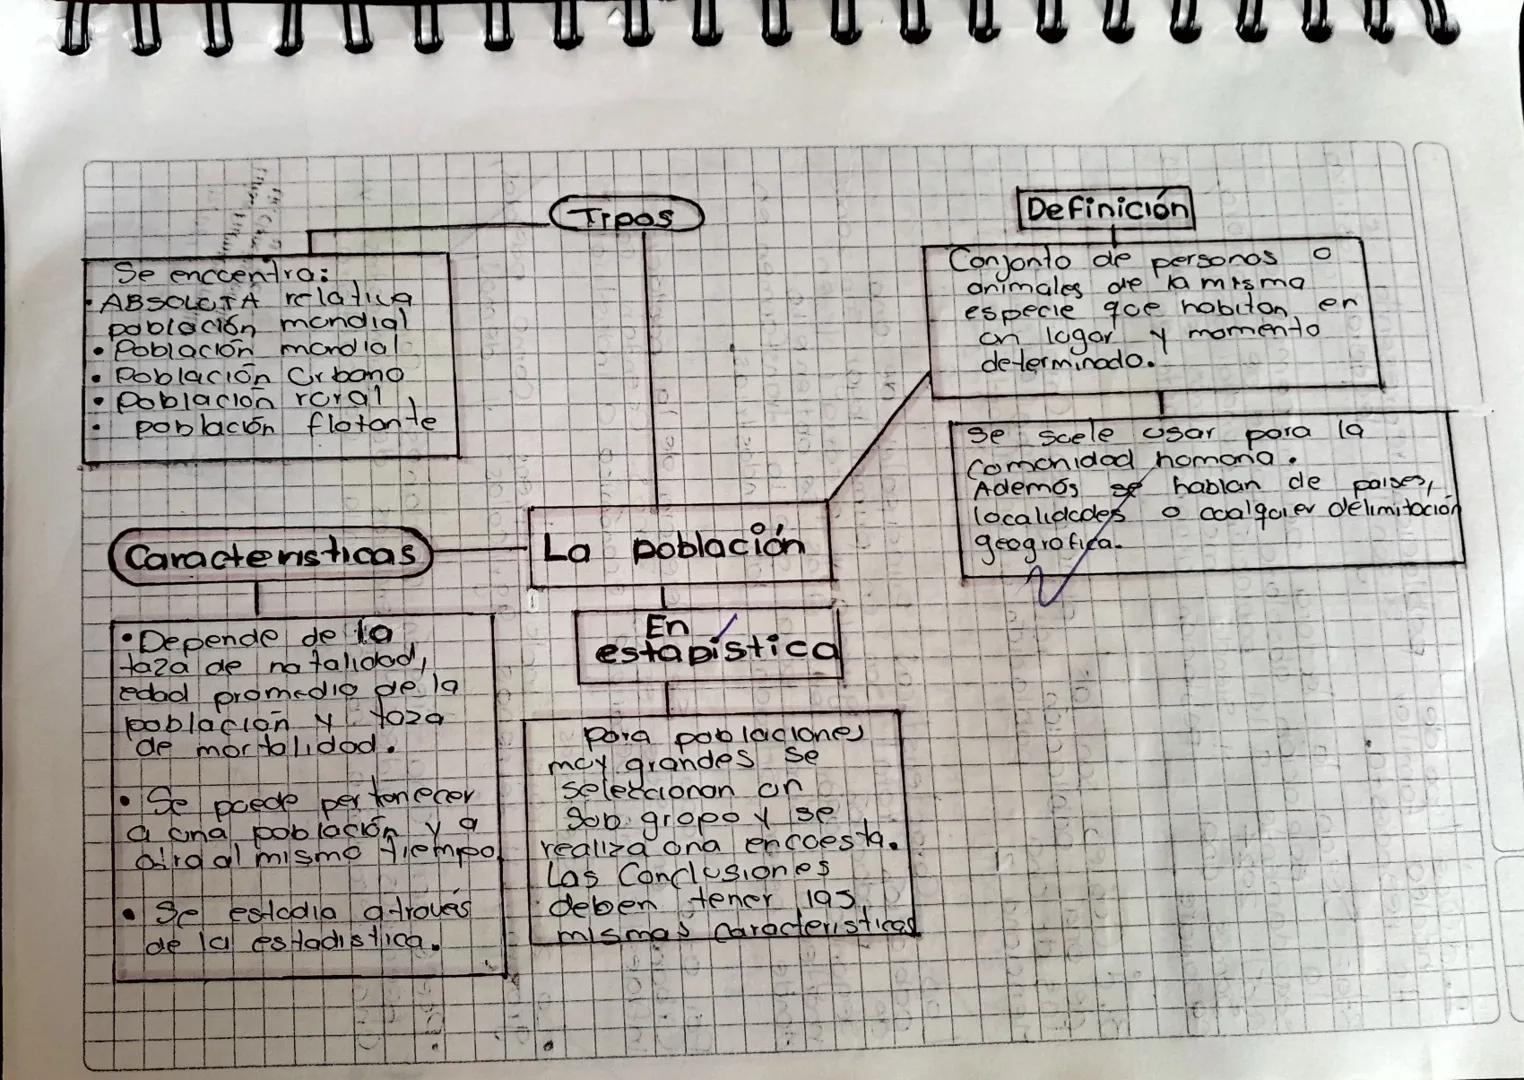 Tipos
Se encuentra:
• ABSOLUTA relativa
población mundial
• Población mundial
• Población Urbano
• Población rural
• población flotante
Definición
Conjunto de personas o
animales de la misma
especie que habitan en
un lugar y momento
determinado.
Se suele usar para la
comunidad humana.
Además se hablan de paises,
localidades o cualquier delimitación
geografica.
Caracteristicas
La población
• Depende de la
taza de natalidad,
edad promedio de la
población y taza
de mortalidad.
• Se puede pertenecer
a una población y a
otra al mismo tiempo
• Se estudia através
de la estadistica.
En
estadística
Para poblaciones
muy grandes se
seleccionan un
sub grupo y se
realiza una encuesta.
Las Conclusiones
deben tener las
mismas caracteristicas